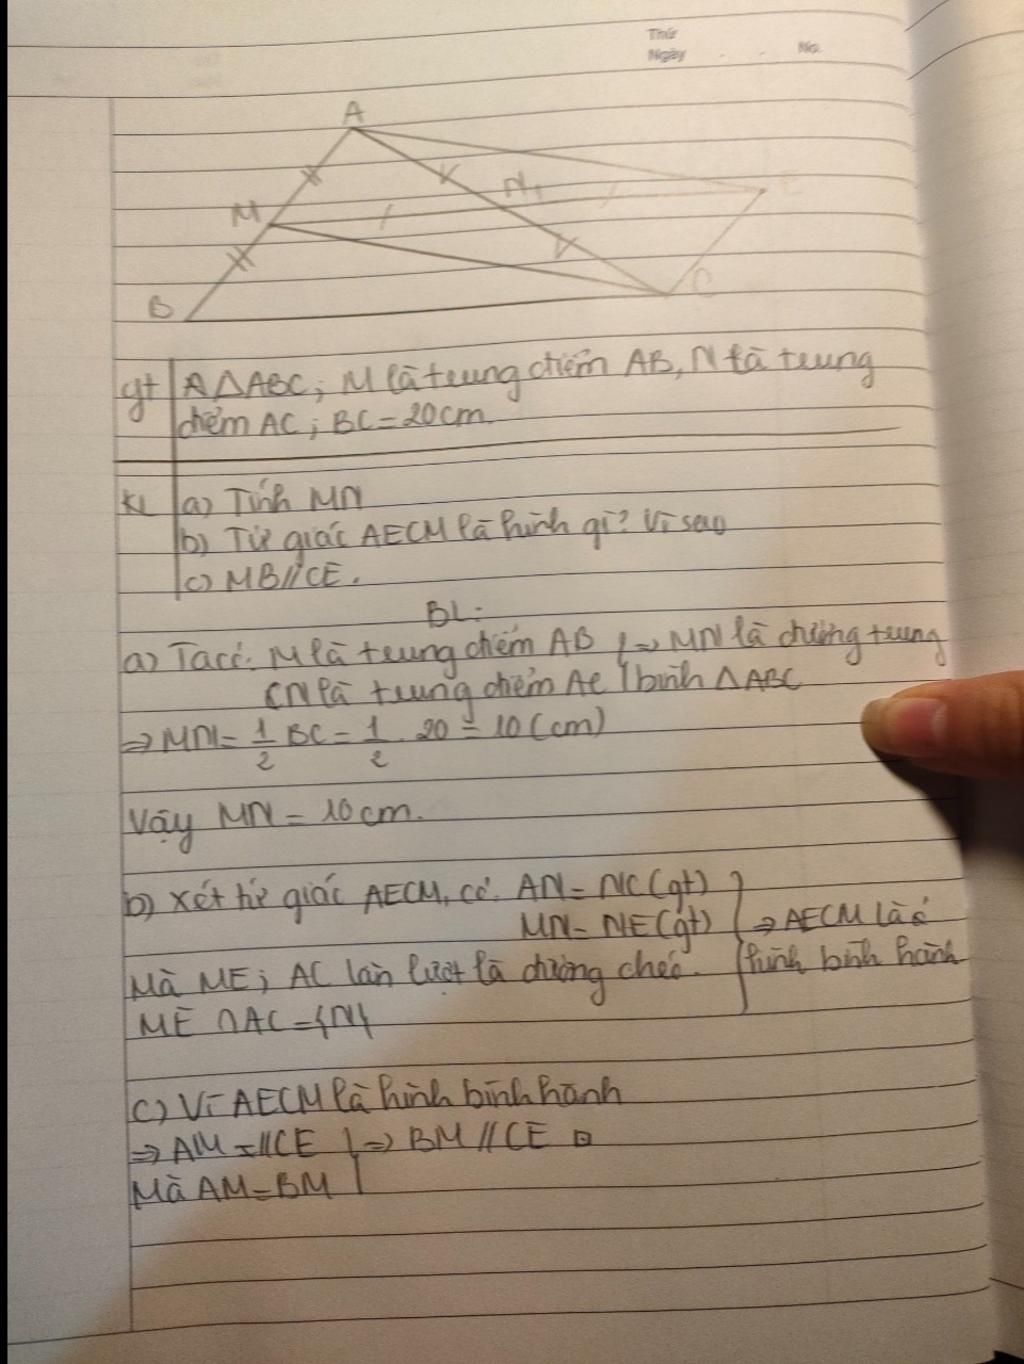 Thứ
Ngày . . No.
A
M
N
E
B
C
gt A ΔABC; M là trung điểm AB, N là trung
điểm AC; BC = 20cm.
KL a) Tính MN
b) Tứ giác AECM là hình gì? Vì sao
c) MB // CE.
BL:
a) Ta có: M là trung điểm AB } => MN là đường trung
N là trung điểm AC bình ΔABC
=> MN = 1/2 BC = 1/2 . 20 = 10 (cm)
Vậy MN = 10cm.
b) Xét tứ giác AECM, có: AN = NC (gt)
MN = NE (gt) } => AECM là
Mà ME; AC lần lượt là đường chéo. hình bình hành
ME ∩ AC = {N}
c) Vì AECM là hình bình hành
=> AM =// CE } => BM // CE
Mà AM = BM